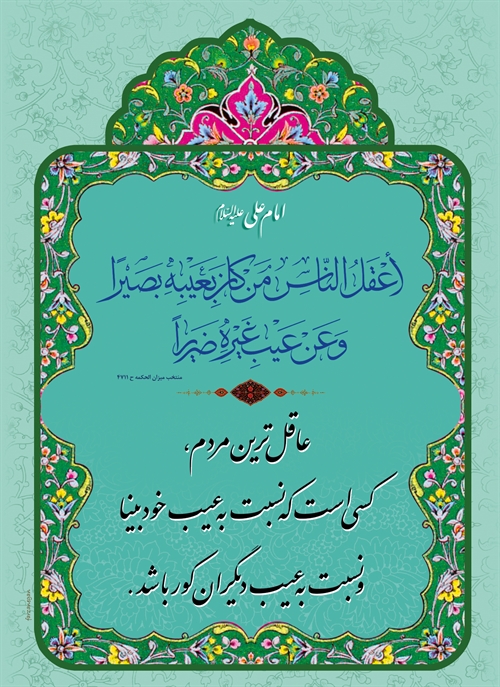 امام علی علیه‌السلام
أَعْقَلُ النَّاسِ مَنْ كَانَ بِعَيْبِهِ بَصِيرًا
وَعَنْ عَيْبِ غَيْرِهِ ضَرِيرًا
منتخب میزان الحکمه ح ۴۷۱۱
عاقل ترین مردم،
کسی است که نسبت به عیب خود بینا
و نسبت به عیب دیگران کور باشد.